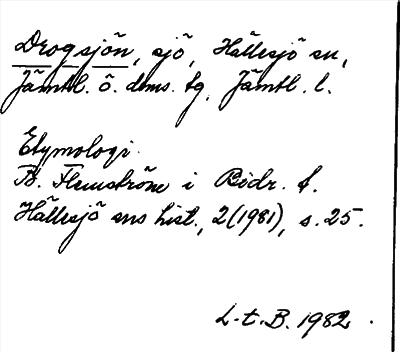 Drogsjön, sjö, Hällesjö sn,
Jämtl. ö. doms. tg, Jämtl. l.
Etymologi.
B. Flemström i Bidr. t.
Hällesjö sns hist., 2 (1981), s. 25.
L-t. B. 1982.